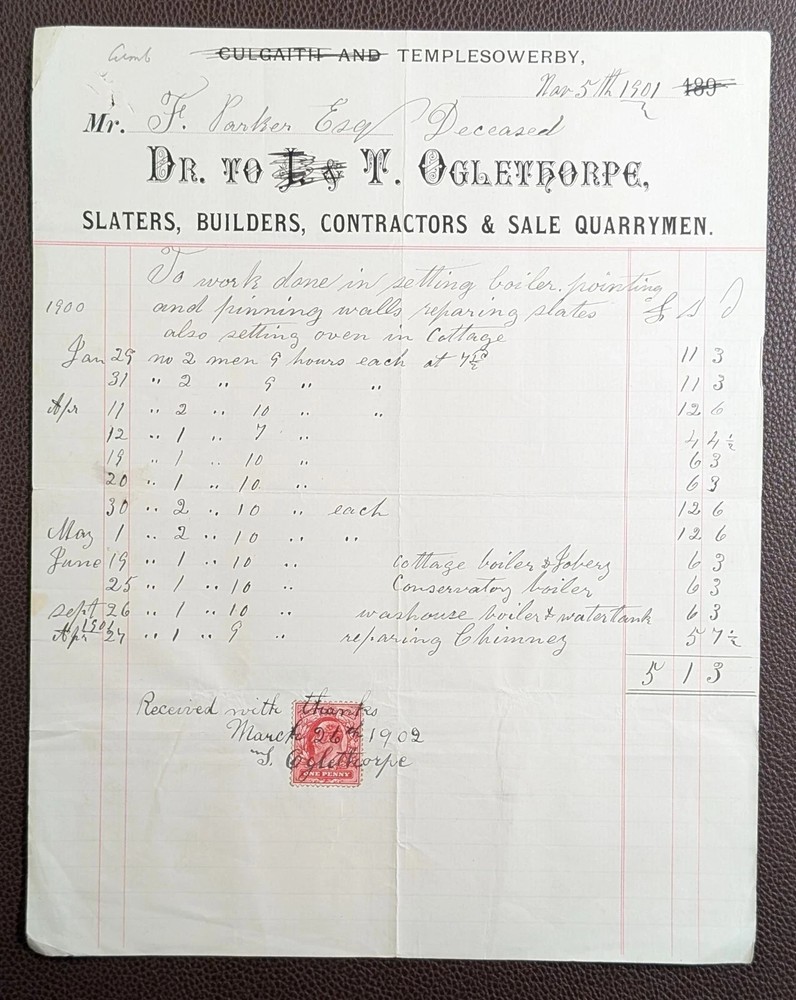 Cumb
CULGAITH AND TEMPLESOWERBY,
Nov 5th 1901 189
Mr. F. Parker Esq Deceased
DR. TO & T. OGLETHORPE,
SLATERS, BUILDERS, CONTRACTORS & SALE QUARRYMEN.
To work done in setting boiler. pointing
1900 and pinning walls reparing slates £ s d
also setting oven in Cottage
Jan 29 no 2 men 9 hours each at 7½ 11 3
31 " 2 " 9 " " 11 3
Apr 11 " 2 " 10 " " 12 6
12 " 1 " 7 " 4 4½
19 " 1 " 10 " 6 3
20 " 1 " 10 " 6 3
30 " 2 " 10 " each 12 6
May 1 " 2 " 10 " " 12 6
June 19 " 1 " 10 " cottage boiler & 6 3
25 " 1 " 10 " Conservatory boiler 6 3
sept 26 " 1 " 10 " washouse boiler & watertank 6 3
1901
Apr 27 " 1 " 9 " reparing Chimney 5 7½
5 1 3
Received with thanks
March 26th 1902
Oglethorpe
ONE PENNY